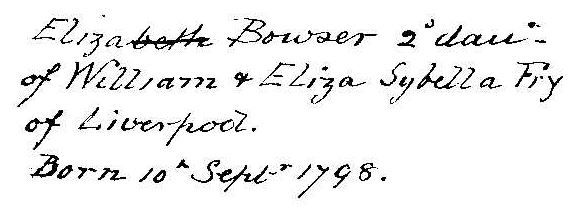 Elizabeth Bowser 2ᵈ dauʳ
of William & Eliza Sybella Fry
of Liverpool.
Born 10ᵗʰ Septʳ 1798.